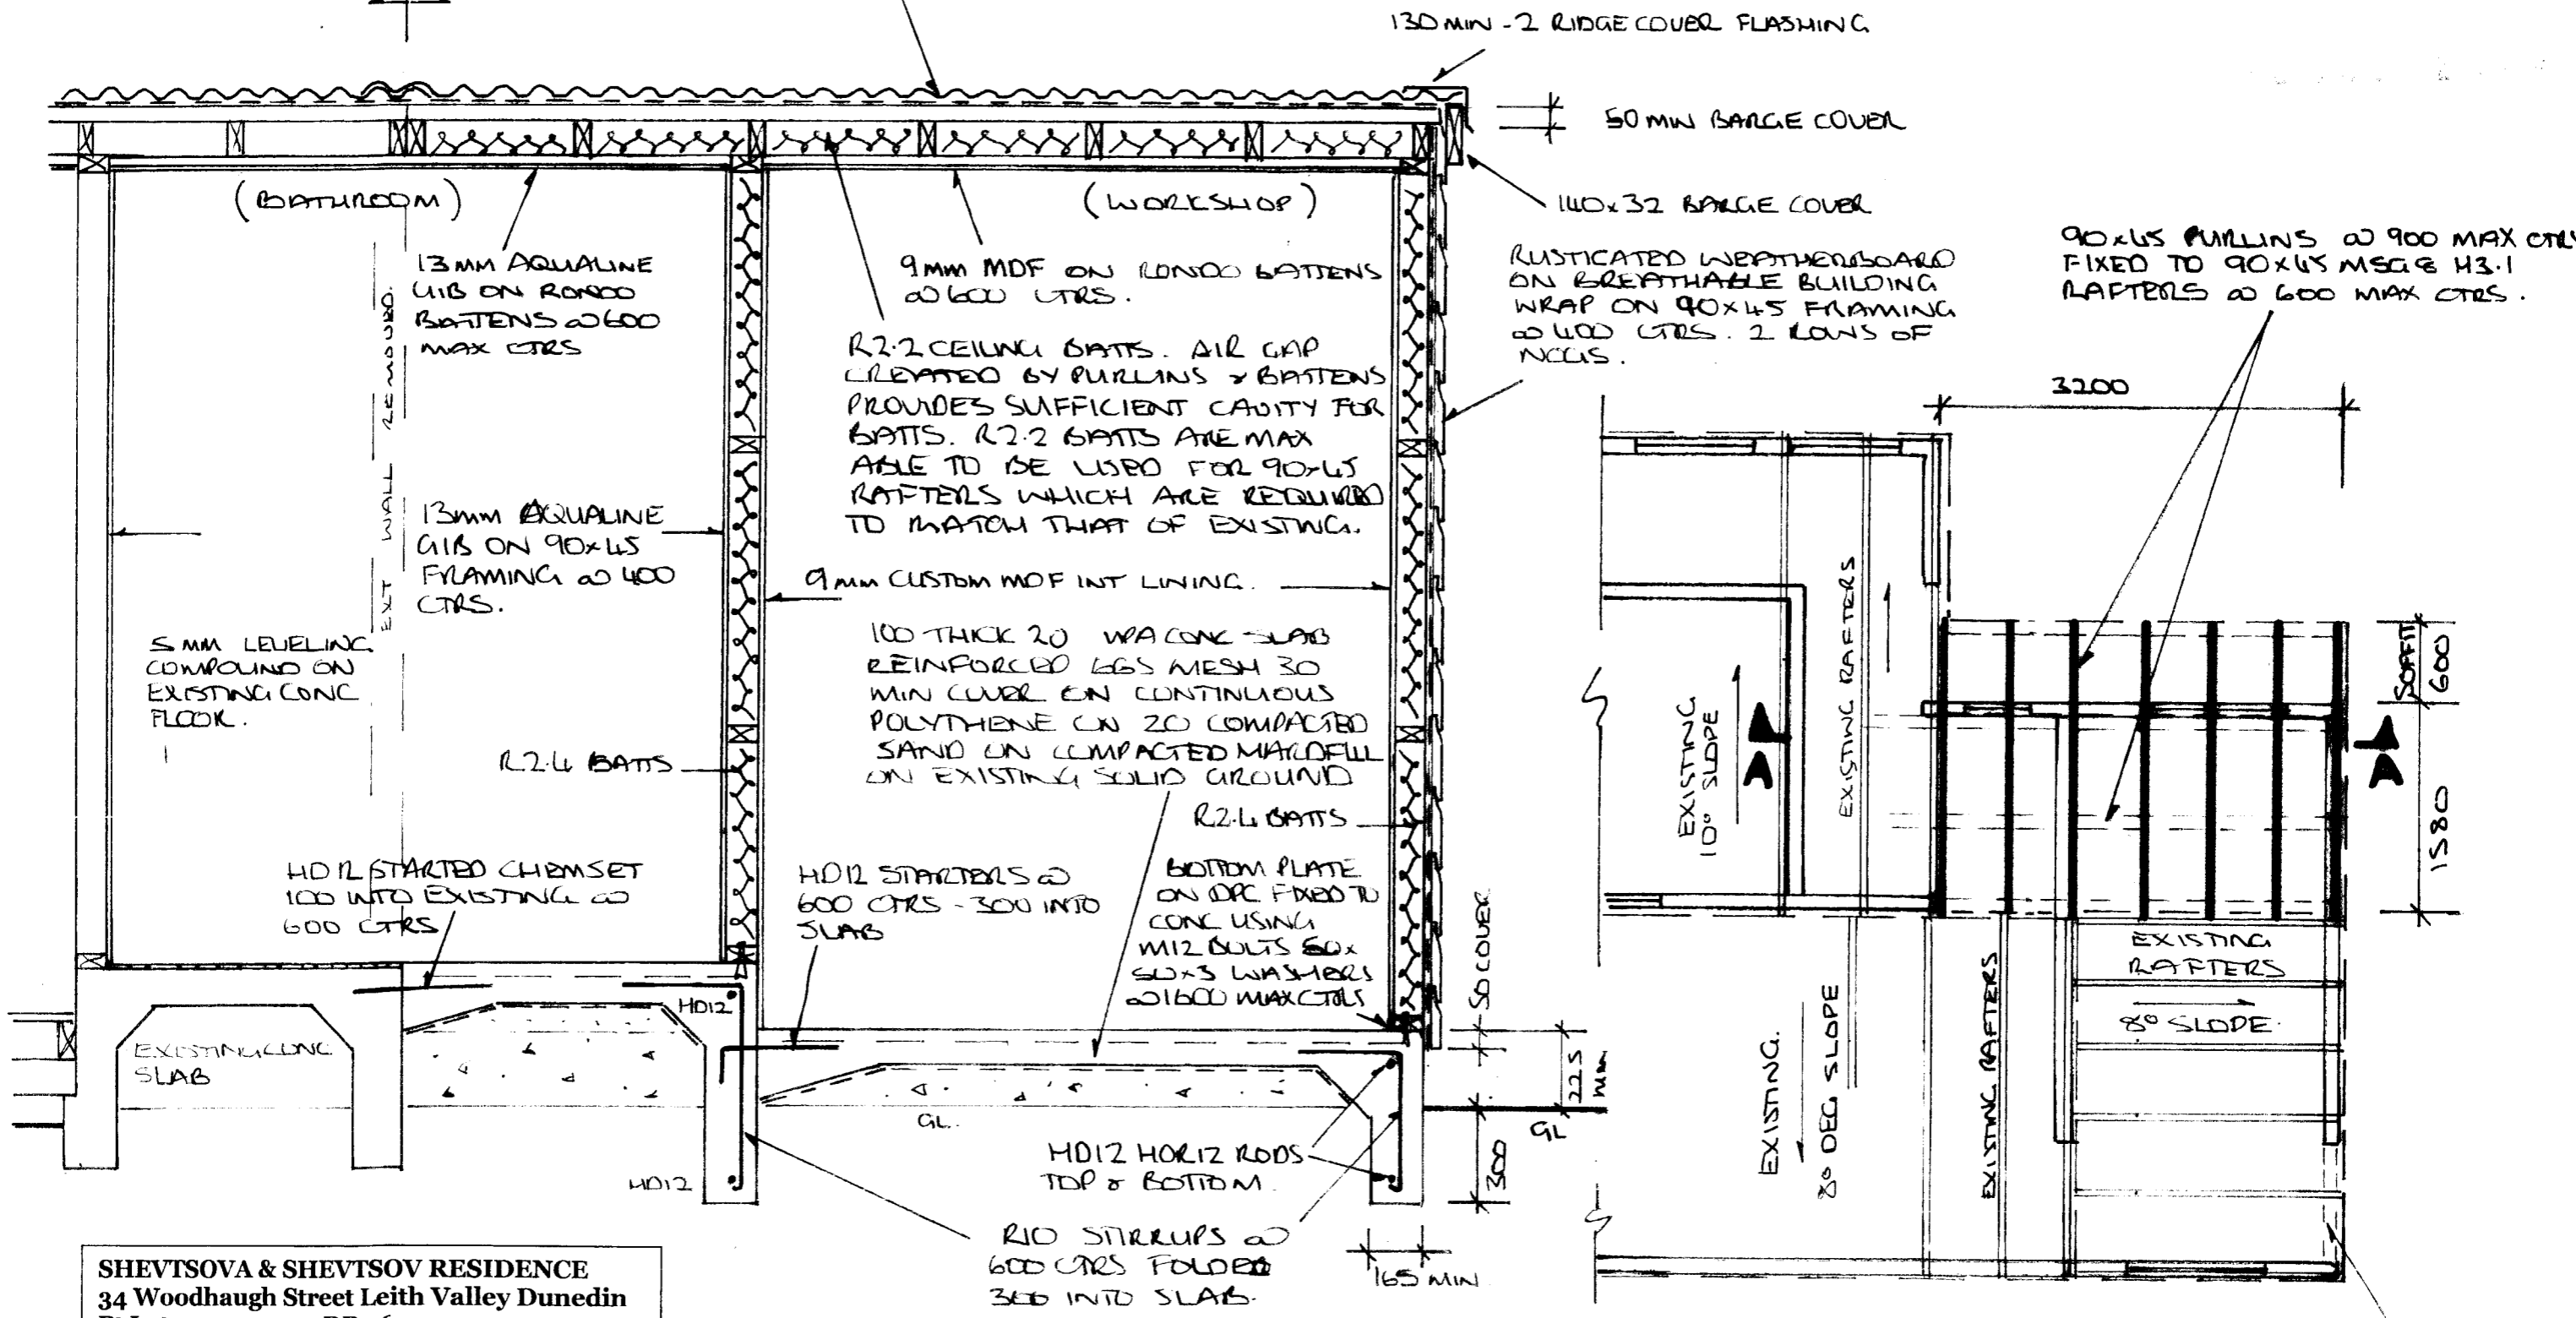 130 MIN - 2 RIDGE COVER FLASHING
50 MIN BARGE COVER
140x32 BARGE COVER
(BATHROOM)
(WORKSHOP)
13MM AQUALINE
GIB ON RONDO
BATTENS @ 600
MAX CTRS
9mm MDF ON RONDO BATTENS
@ 600 CTRS.
RUSTICATED WEATHERBOARD
ON BREATHABLE BUILDING
WRAP ON 90x45 FRAMING
@ 400 CTRS. 2 ROWS OF
NOGS.
90x45 PURLINS @ 900 MAX CTRS
FIXED TO 90x45 MSG8 H3.1
RAFTERS @ 600 MAX CTRS.
R2.2 CEILING BATTS. AIR GAP
CREATED BY PURLINS & BATTENS
PROVIDES SUFFICIENT CAVITY FOR
BATTS. R2.2 BATTS ARE MAX
ABLE TO BE USED FOR 90x45
RAFTERS WHICH ARE REQUIRED
TO MATCH THAT OF EXISTING.
EXT WALL REMOVED.
13mm AQUALINE
GIB ON 90x45
FRAMING @ 400
CTRS.
9mm CUSTOM MDF INT LINING.
5MM LEVELING
COMPOUND ON
EXISTING CONC
FLOOR.
100 THICK 20 MPA CONC SLAB
REINFORCED 665 MESH 30
MIN COVER ON CONTINUOUS
POLYTHENE ON 20 COMPACTED
SAND ON COMPACTED HARDFILL
ON EXISTING SOLID GROUND
R2.4 BATTS
R2.4 BATTS
HD12 STARTED CHEMSET
100 INTO EXISTING @
600 CTRS
HD12 STARTERS @
600 CTRS - 300 INTO
SLAB
BOTTOM PLATE
ON DPC FIXED TO
CONC USING
M12 BOLTS 50x
50x3 WASHERS
@ 1600 MAX CTRS
50 COVER
225
MIN
300
GL
GL.
HD12
HD12
EXISTING CONC
SLAB
HD12 HORIZ RODS
TOP & BOTTOM.
R10 STIRRUPS @
600 CTRS FOLDED
300 INTO SLAB.
165 MIN
3200
SOFFIT
600
1580
EXISTING
10° SLOPE
EXISTING RAFTERS
A
A
EXISTING
RAFTERS
8° SLOPE.
EXISTING.
8° DEG SLOPE
EXISTING RAFTERS
SHEVTSOVA & SHEVTSOV RESIDENCE
34 Woodhaugh Street Leith Valley Dunedin